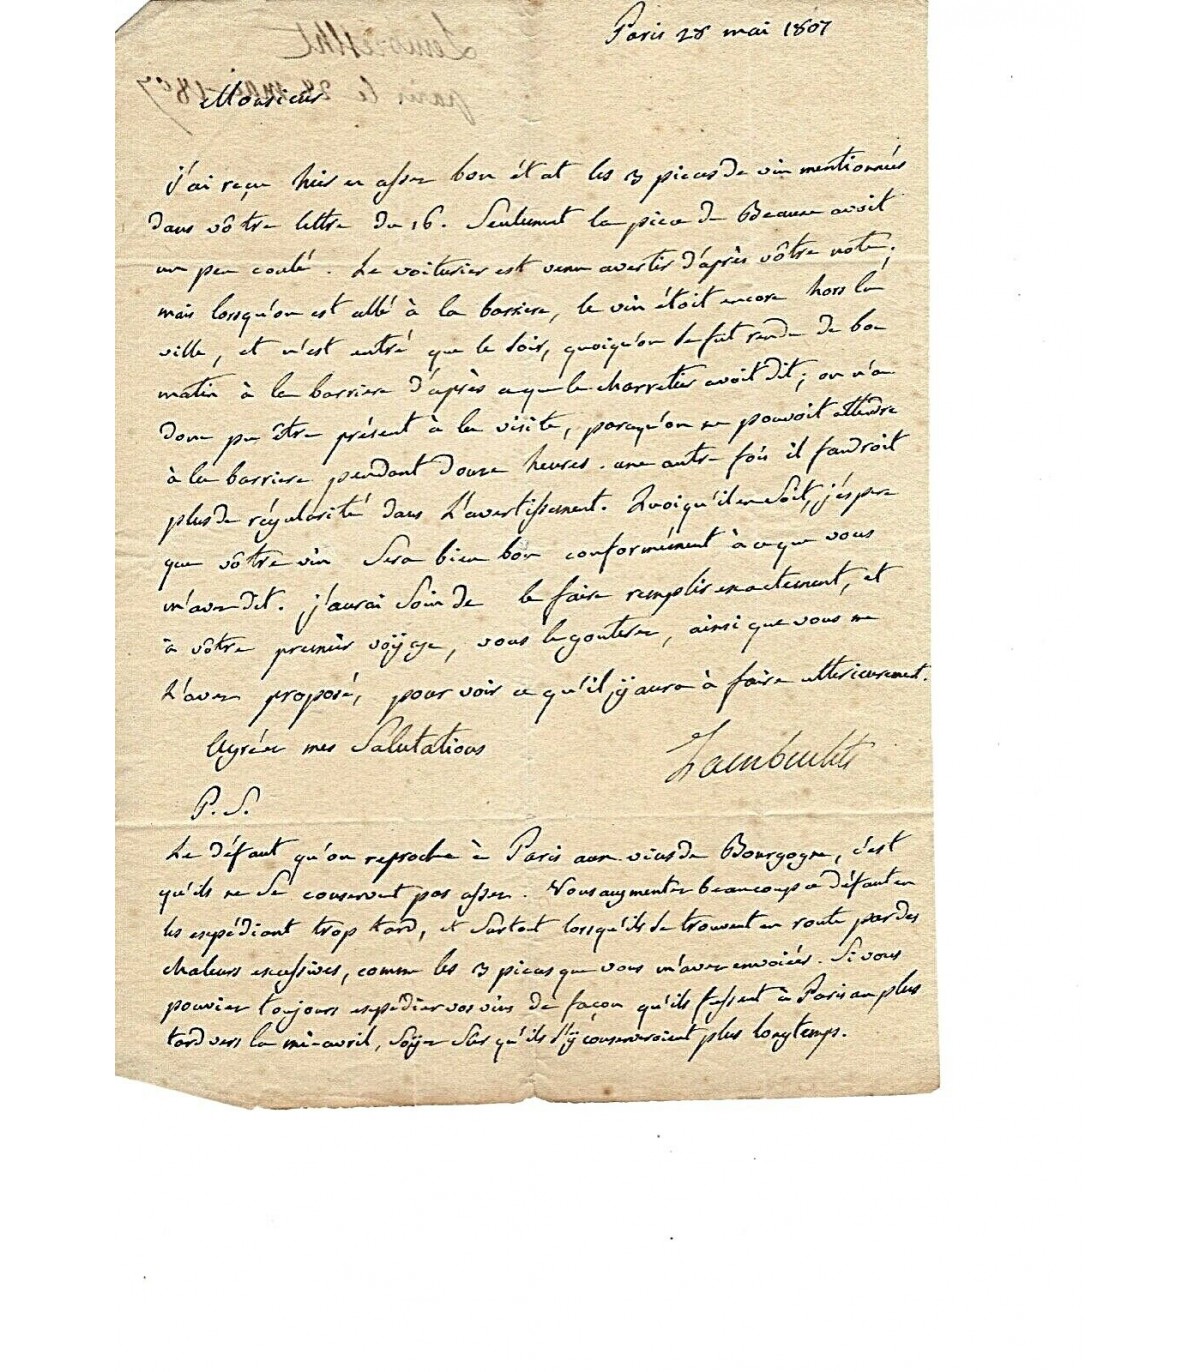 Paris 28 mai 1807
Monsieur
J'ai reçu hier en assez bon état les 3 pieces de vin mentionnées
dans vôtre lettre du 16. Seulement la piece de Beaune avoit
un peu coulé. Le voiturier est venu avertir d'après vôtre note;
mais lorsqu'on est allé à la barriere, le vin étoit encore hors la
ville, et n'est entré que le soir, quoiqu'on se fut rendu de bon
matin à la barriere d'après ce que le charretier avoit dit; on n'a
donc pu être présent à la visite, parcequ'on ne pouvoit attendre
à la barriere pendant douze heures. une autre fois il faudroit
plus de régularité dans l'avertissement. Quoiqu'il en soit, j'espere
que vôtre vin sera bien bon conformément à ce que vous
m'avez dit. j'aurai soin de le faire remplir exactement, et
à vôtre premier voÿage, vous le gouterez, ainsi que vous me
l'avez proposé, pour voir ce qu'il ÿ aura à faire ulterieurement.
Agréez mes Salutations
P.S.
Le défaut qu'on reproche à Paris aux vins de Bourgogne, c'est
qu'ils ne se conservent pas assez. Vous augmentez beaucoup ce défaut en
les expédiant trop tard, et surtout lorsqu'ils se trouvent en route par des
chaleurs excessives, comme les 3 pieces que vous m'avez envoiées. Si vous
pouviez toujours expédier vos vins de façon qu'ils fussent à Paris au plus
tard vers la mi-avril, soÿez sûr qu'ils s'ÿ conserveroient plus longtemps.